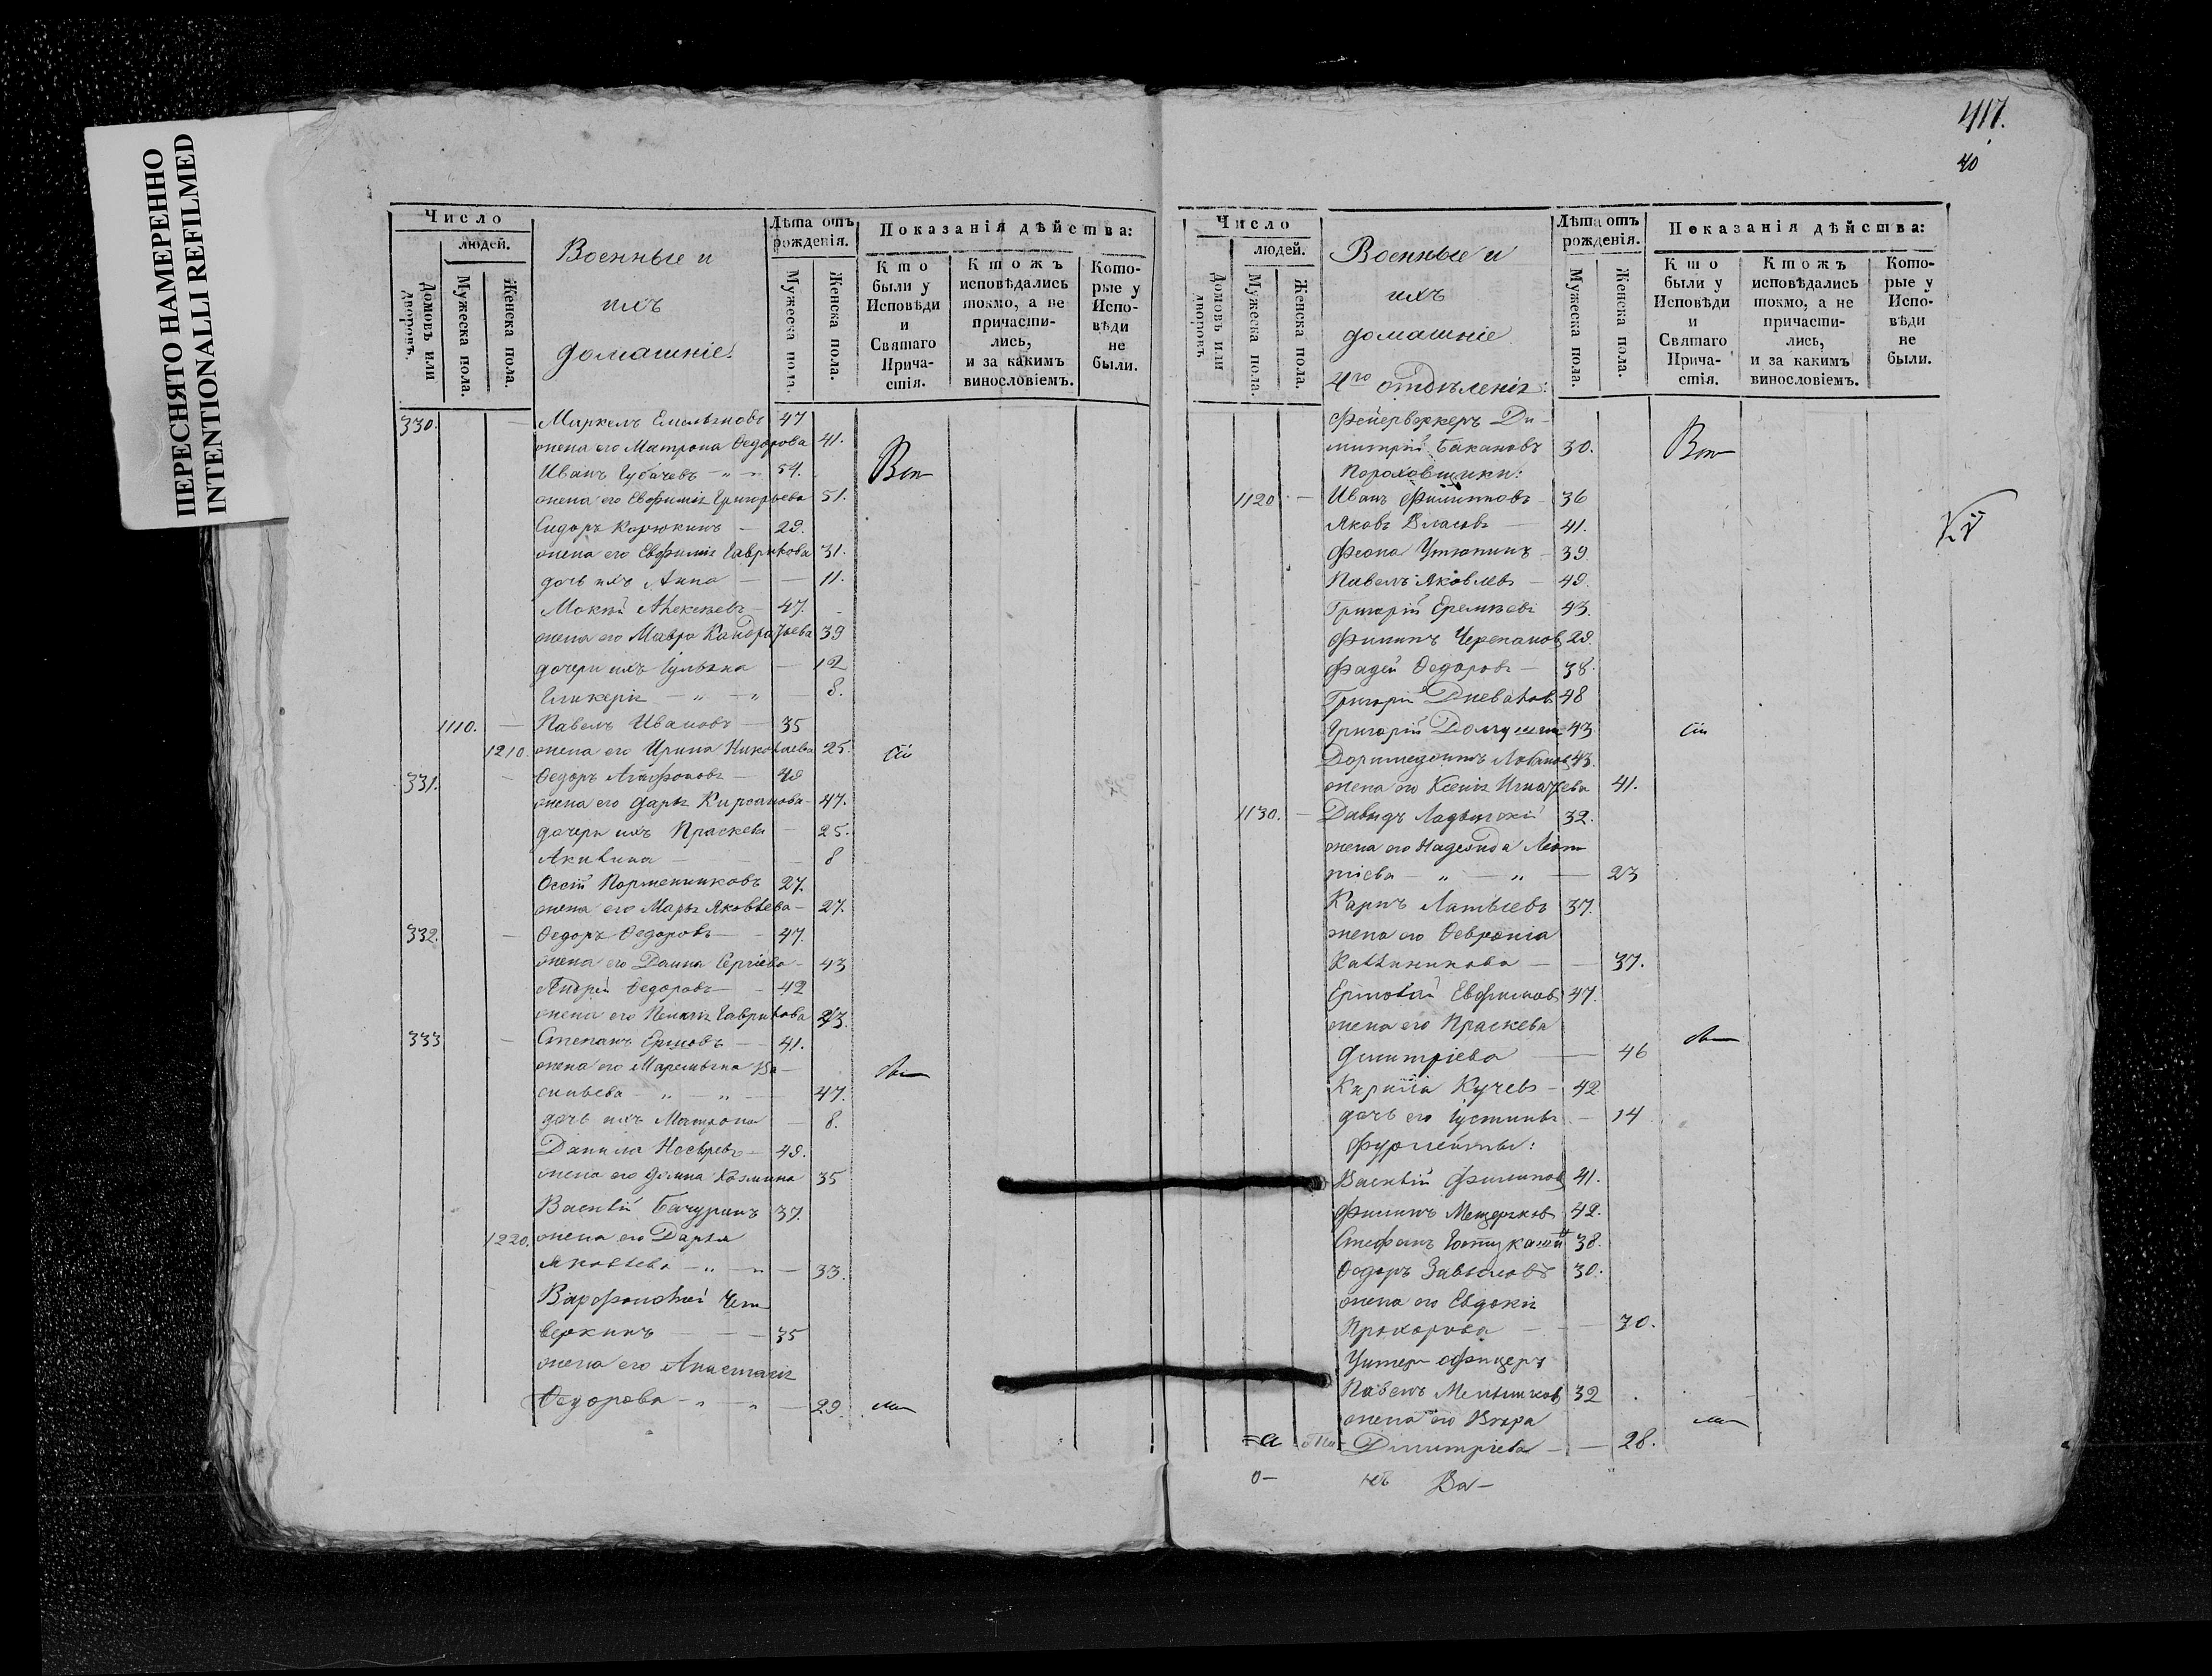 ПЕРЕСНЯТО НАМЕРЕННО
INTENTIONALLI REFILMED
417.
40
Число
людей.
Домовъ или дворовъ.
Мужеска пола.
Женска пола.
Военные и
ихъ
домашніе.
Лѣта отъ рожденія.
Мужеска пола.
Женска пола.
Показанія дѣйства:
Кто были у Исповѣди и Святаго Причастія.
Ктожъ исповѣдались токмо, а не причастились, и за какимъ винословіемъ.
Которые у Исповѣди не были.
330. Маркелъ Емельяновъ 47
жена его Матрона Ѳедорова 41.
Иванъ Губачевъ 54.
жена его Евфимія Григорьева 51.
Сидоръ Корюкинъ 29.
жена его Евфимія Гаврилова 31.
дочь ихъ Анна 11.
Мокій Алексѣевъ 47.
жена его Мавра Кандратьева 39
дочери ихъ Ульяна 12
Гликерія 8.
1110. Павелъ Ивановъ 35
1210. жена его Ирина Николаева 25.
331. Ѳедоръ Агафоновъ 48
жена его Дарья Кирсанова 47.
дочери ихъ Праскева 25.
Акилина 8
Осипъ 27.
жена его Марья Яковлева 27.
332. Ѳедоръ Ѳедоровъ 47.
жена его Домна Сергіева 43
Андрей Ѳедоровъ 42
жена его Гаврилова 43
333 Степанъ Ершовъ 41.
жена его Маремьяна Ва-
сильева 47.
дочь ихъ Матрона 8.
Данила 49.
жена его Домна Козмина 35
Василій Бачуринъ 37.
1220. жена его Дарья
Яковлева 33.
Варфоломей Чет-
веркинъ 35
жена его Анастасія
Ѳедорова 29.
Число
людей.
Домовъ или дворовъ.
Мужеска пола.
Женска пола.
Военные и
ихъ
домашніе
4го отдѣленія:
Лѣта отъ рожденія.
Мужеска пола.
Женска пола.
Показанія дѣйства:
Кто были у Исповѣди и Святаго Причастія.
Ктожъ исповѣдались токмо, а не причастились, и за какимъ винословіемъ.
Которые у Исповѣди не были.
Фейерверкеръ Ди-
митрій Бакановъ 30.
Пороховщики:
1120 Иванъ Филиповъ 36
Яковъ Власовъ 41.
Феопа Утюпинъ 39
Павелъ Яковлевъ 49.
Григорій Еремѣевъ 43.
Филипъ Черепановъ 29.
Фадей Ѳедоровъ 38.
Григорій Дневаловъ 48
Григорій 43
Доримедонтъ Лобановъ 43.
жена его Ксенія Игнатьева 41.
1130. Давидъ 32.
жена его Надежда Леон-
тіева 23
Карпъ 37.
жена его Ѳевронія
Калиникова 37.
Ермолай Евфимовъ 47.
жена его Праскева
Димитріева 46
Кирила Кучевъ 42
дочь его Устинья 14
Фурлейты:
Василій Филиповъ 41.
Филипъ Мещеряковъ 42.
Стефанъ 38.
Ѳедоръ Завьяловъ 30.
жена его Евдокія
Прохорова 30.
Унтеръ-офицеръ
Павелъ Меньшиковъ 32
жена его Вѣра
Димитріева 28.